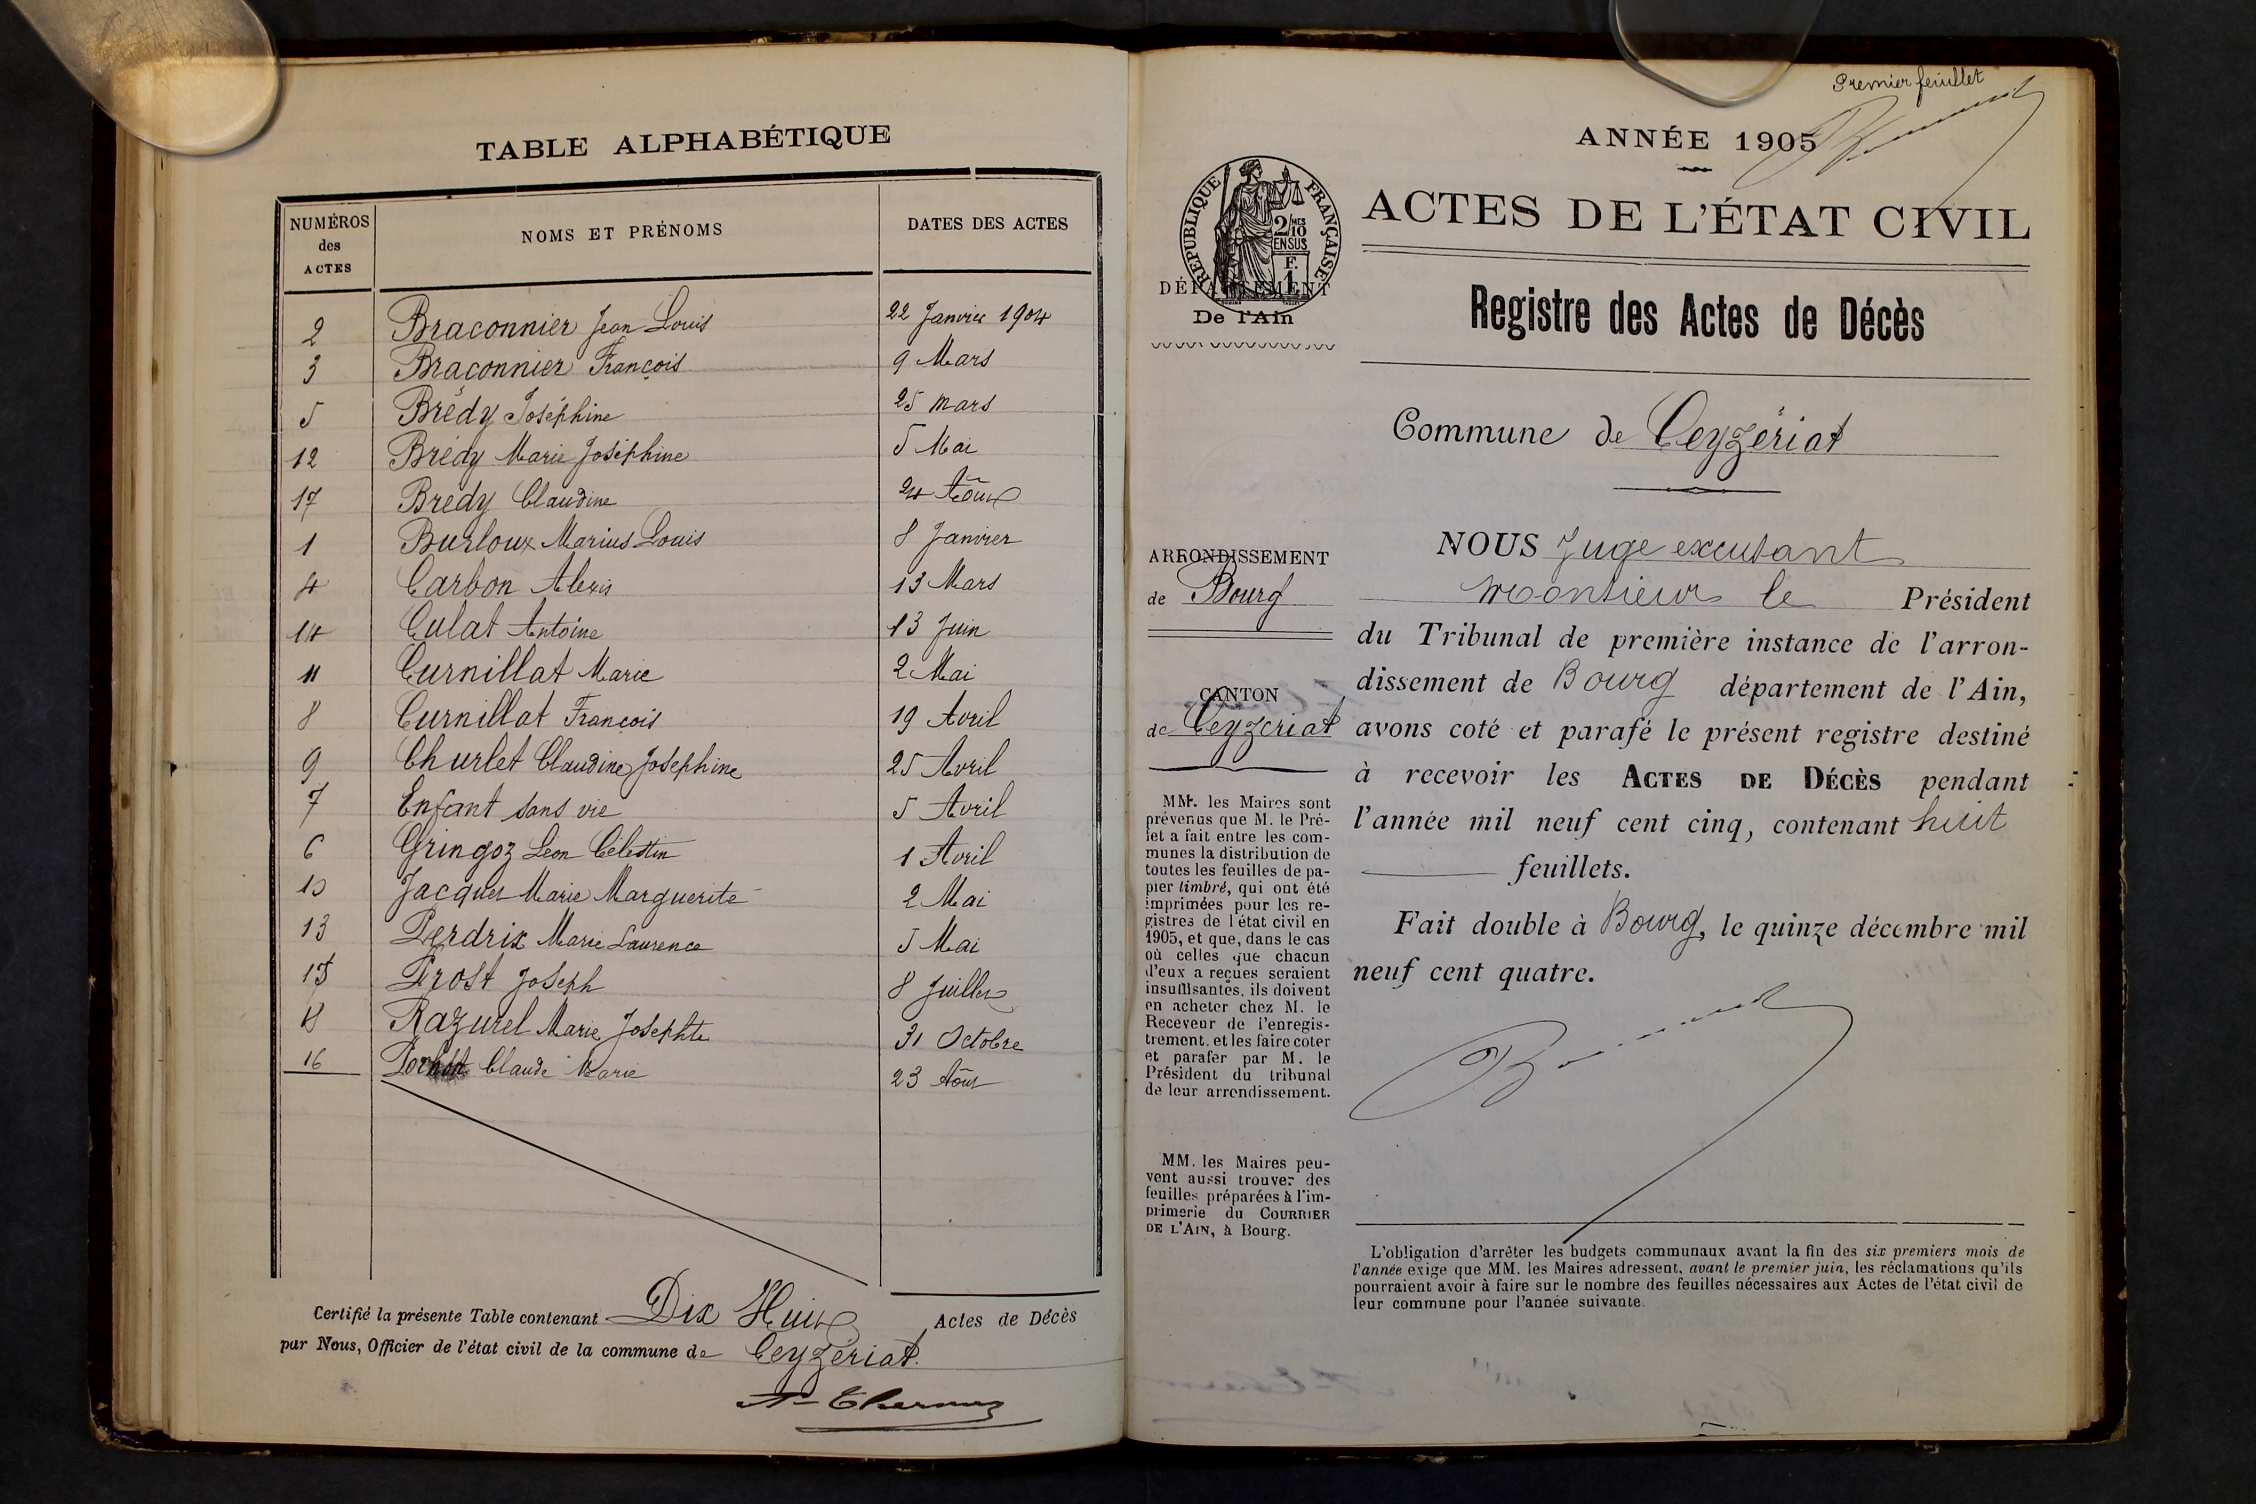 TABLE ALPHABÉTIQUE
NUMÉROS des ACTES
NOMS ET PRÉNOMS
DATES DES ACTES
2 Braconnier Jean Louis 22 Janvier 1904
3 Braconnier François 9 Mars
5 Brédy Joséphine 25 mars
12 Brédy Marie Joséphine 5 Mai
17 Brédy Claudine 24 Aôut
1 Burloux Marius Louis 8 Janvier
4 Carbon Alexis 13 Mars
14 Culat Antoine 13 Juin
11 Curnillat Marie 2 Mai
8 Curnillat François 19 Avril
9 Churlet Claudine Josephine 25 Avril
7 Enfant sans vie 5 Avril
6 Gringoz Léon Célestin 1 Avril
10 Jacquet Marie Marguerite 2 Mai
13 Perdrix Marie Laurence 5 Mai
15 Prost Joseph 8 Juillet
18 Razurel Marie Josephte 31 Octobre
16 Claude Marie 23 Aôut
Certifié la présente Table contenant Dix Huit Actes de Décès
par Nous, Officier de l'état civil de la commune de Ceyzériat.
Premier feuillet
ANNÉE 1905
ACTES DE L'ÉTAT CIVIL
RÉPUBLIQUE FRANÇAISE
2/10 MES
EN SUS
1 F.
DÉPARTEMENT
De l'Ain
Registre des Actes de Décès
Commune de Ceyzériat
ARRONDISSEMENT
de Bourg
CANTON
de Ceyzeriat
MM. les Maires sont
prévenus que M. le Pré-
fet a fait entre les com-
munes la distribution de
toutes les feuilles de pa-
pier timbré, qui ont été
imprimées pour les re-
gistres de l'état civil en
1905, et que, dans le cas
où celles que chacun
d'eux a reçues seraient
insuffisantes, ils doivent
en acheter chez M. le
Receveur de l'enregis-
trement, et les faire coter
et parafer par M. le
Président du tribunal
de leur arrondissement.
MM. les Maires peu-
vent aussi trouver des
feuilles préparées à l'im-
primerie du COURRIER
DE L'AIN, à Bourg.
NOUS Juge excusant
monsieur le Président
du Tribunal de première instance de l'arron-
dissement de Bourg département de l'Ain,
avons coté et parafé le présent registre destiné
à recevoir les ACTES DE DÉCÈS pendant
l'année mil neuf cent cinq, contenant huit
feuillets.
Fait double à Bourg, le quinze décembre mil
neuf cent quatre.
L'obligation d'arrêter les budgets communaux avant la fin des six premiers mois de
l'année exige que MM. les Maires adressent, avant le premier juin, les réclamations qu'ils
pourraient avoir à faire sur le nombre des feuilles nécessaires aux Actes de l'état civil de
leur commune pour l'année suivante.